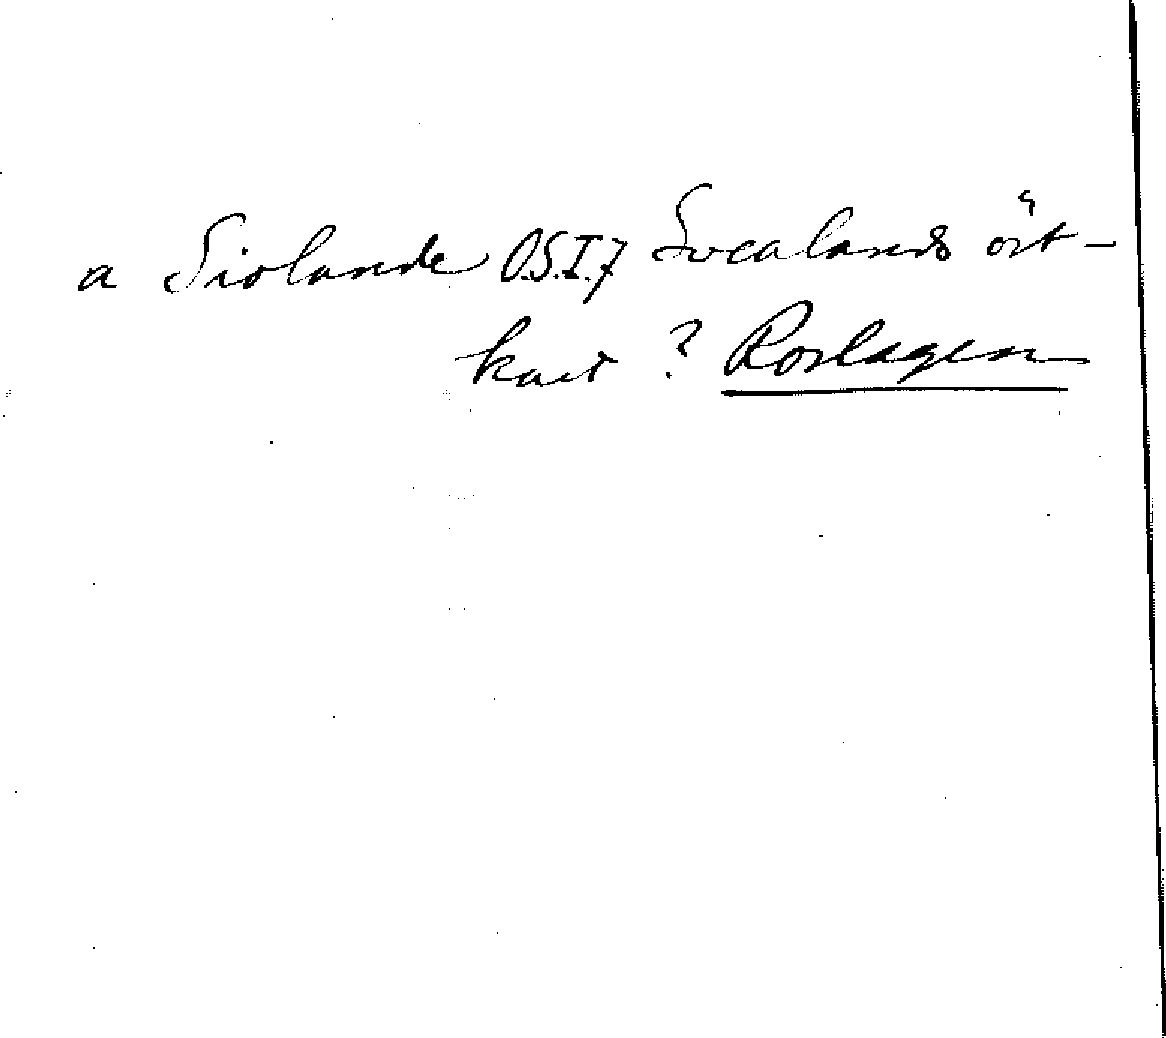 a Siolande O.S.I.7 Svealands ost-
kust ? Roslagen